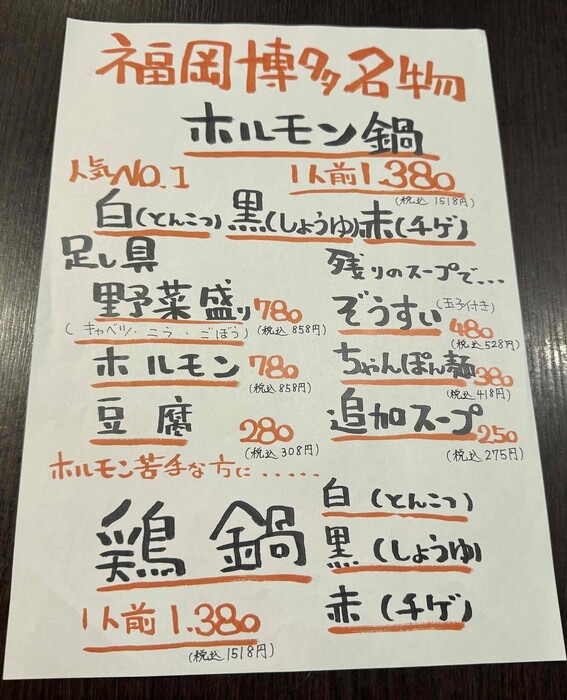 福岡博多名物
ホルモン鍋
人気NO.1
1人前1.380
(税込1518円)
白(とんこつ) 黒(しょうゆ) 赤(チゲ)
足し具
野菜盛り780
(税込858円)
(キャベツ・ニラ・ごぼう)
ホルモン780
(税込858円)
豆腐280
(税込308円)
残りのスープで...
ぞうすい(玉子付き)480
(税込528円)
ちゃんぽん麺380
(税込418円)
追加スープ250
(税込275円)
ホルモン苦手な方に.....
鶏鍋
1人前1.380
(税込1518円)
白(とんこつ)
黒(しょうゆ)
赤(チゲ)